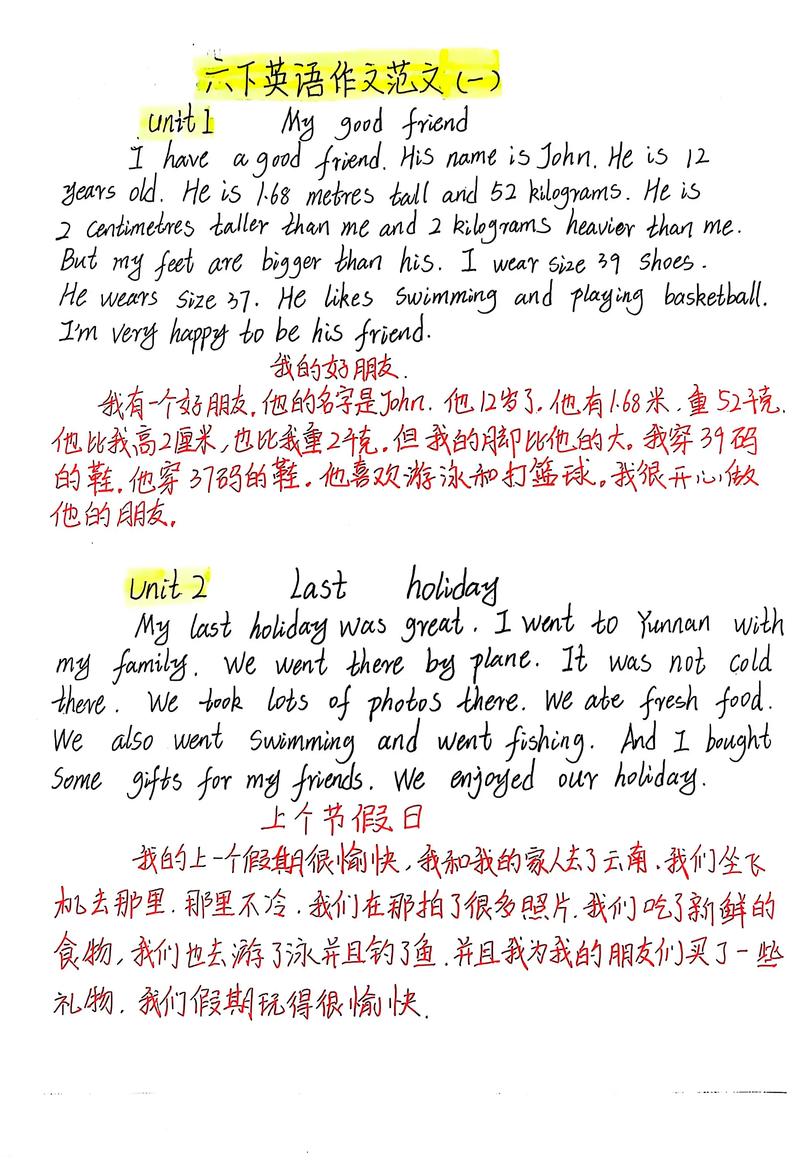 六下英语作文范文(一)
Unit 1 My good friend
I have a good friend. His name is John. He is 12
years old. He is 1.68 metres tall and 52 kilograms. He is
2 centimetres taller than me and 2 kilograms heavier than me.
But my feet are bigger than his. I wear size 39 shoes.
He wears size 37. He likes swimming and playing basketball.
I'm very happy to be his friend.
我的好朋友.
我有一个好朋友.他的名字是John.他12岁了.他有1.68米.重52千克.
他比我高2厘米,也比我重2千克.但我的脚比他的大。我穿39码
的鞋.他穿37码的鞋.他喜欢游泳和打篮球。我很开心做
他的朋友。
Unit 2 Last holiday
My last holiday was great. I went to Yunnan with
my family. We went there by plane. It was not cold
there. We took lots of photos there. We ate fresh food.
We also went swimming and went fishing. And I bought
some gifts for my friends. We enjoyed our holiday.
上个节假日
我的上一个假期很愉快,我和我的家人去了云南.我们坐飞
机去那里.那里不冷.我们在那拍了很多照片.我们吃了新鲜的
食物,我们也去游了泳并且钓了鱼.并且我为我的朋友们买了一些
礼物.我们假期玩得很愉快.